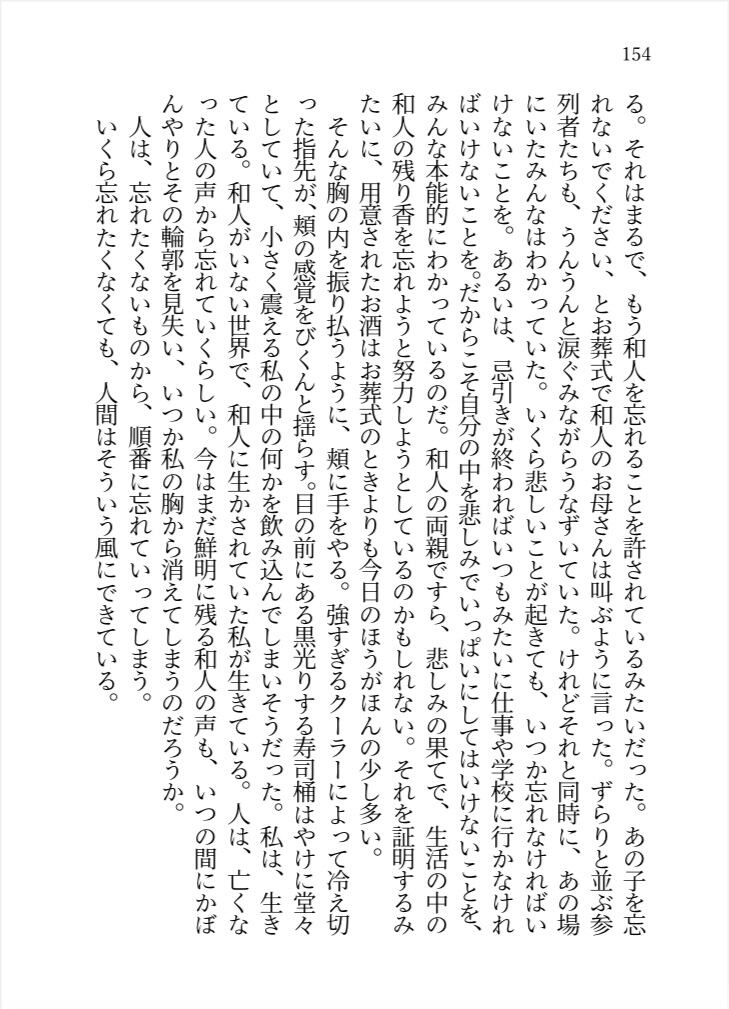 154
る。それはまるで、もう和人を忘れることを許されているみたいだった。あの子を忘
れないでください、とお葬式で和人のお母さんは叫ぶように言った。ずらりと並ぶ参
列者たちも、うんうんと涙ぐみながらうなずいていた。けれどそれと同時に、あの場
にいたみんなはわかっていた。いくら悲しいことが起きても、いつか忘れなければい
けないことを。あるいは、忌引きが終わればいつもみたいに仕事や学校に行かなけれ
ばいけないことを。だからこそ自分の中を悲しみでいっぱいにしてはいけないことを、
みんな本能的にわかっているのだ。和人の両親ですら、悲しみの果てで、生活の中の
和人の残り香を忘れようと努力しようとしているのかもしれない。それを証明するみ
たいに、用意されたお酒はお葬式のときよりも今日のほうがほんの少し多い。
そんな胸の内を振り払うように、頬に手をやる。強すぎるクーラーによって冷え切
った指先が、頬の感覚をびくんと揺らす。目の前にある黒光りする寿司桶はやけに堂々
としていて、小さく震える私の中の何かを飲み込んでしまいそうだった。私は、生き
ている。和人がいない世界で、和人に生かされていた私が生きている。人は、亡くな
った人の声から忘れていくらしい。今はまだ鮮明に残る和人の声も、いつの間にかぼ
んやりとその輪郭を見失い、いつか私の胸から消えてしまうのだろうか。
人は、忘れたくないものから、順番に忘れていってしまう。
いくら忘れたくなくても、人間はそういう風にできている。